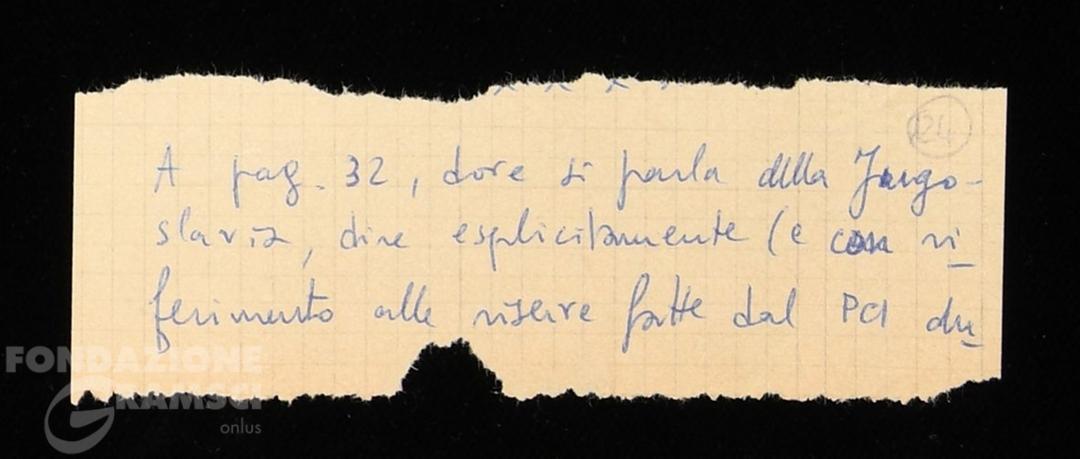 24
A pag. 32, dove si parla della Jugo-
slavia, dire esplicitamente (e con ri
ferimento alle riserve fatte dal PCI du
FONDAZIONE
GRAMSCI
onlus